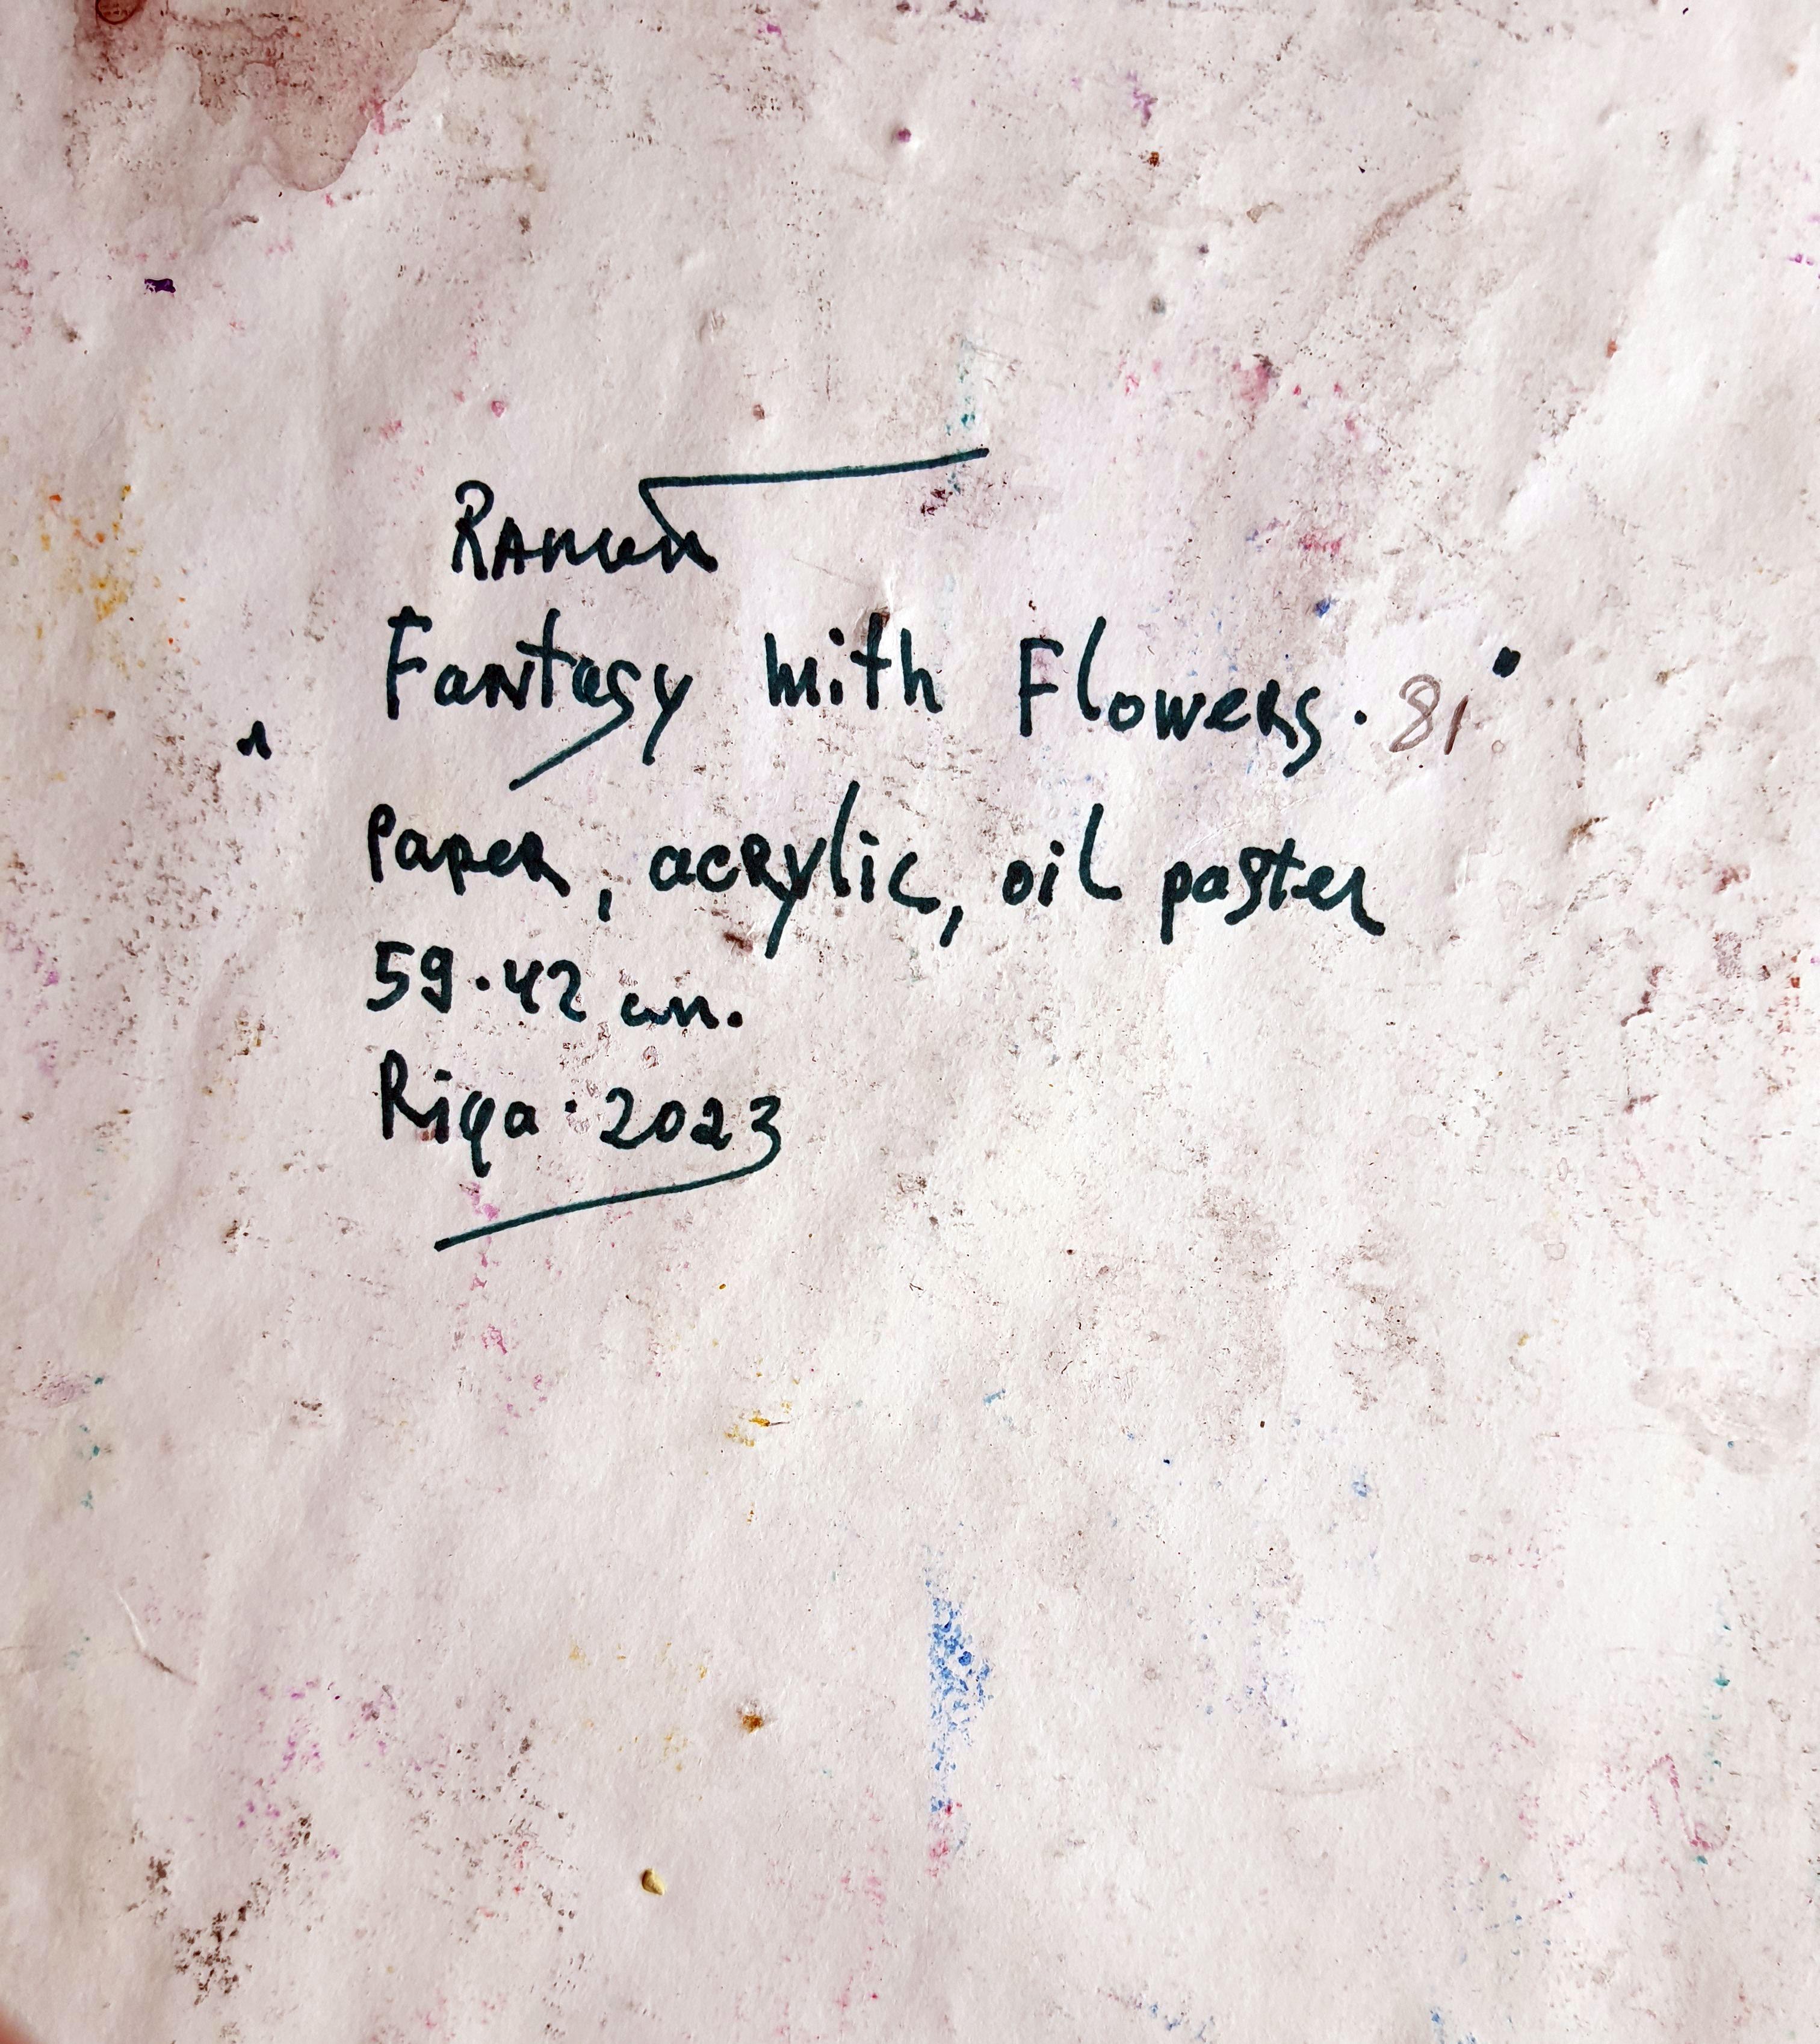 „Fantasy with Flowers. 81"
Paper, acrylic, oil paster
59·42 cm.
Riga·2023